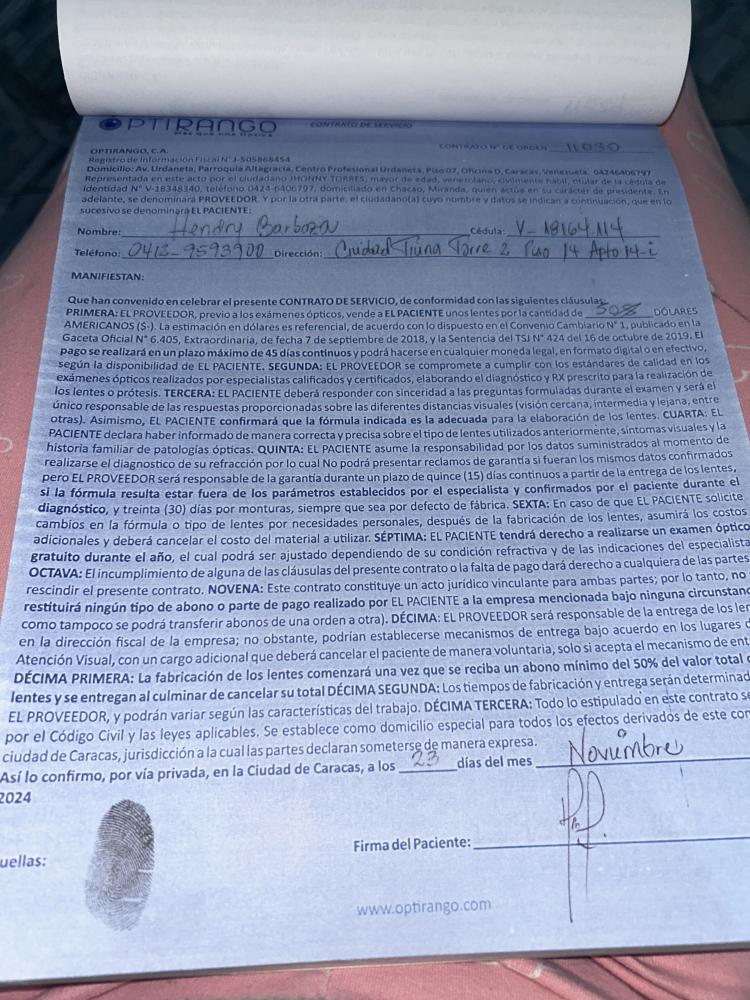 OPTIRANGO
CONTRATO DE SERVICIO
OPTIRANGO, C.A.
CONTRATO N° DE ORDEN 11030
Registro de Información Fiscal N° J-505868454
Domicilio: Av. Urdaneta, Parroquia Altagracia, Centro Profesional Urdaneta, Piso 07, Oficina D, Caracas, Venezuela. 04246406797
Representada en este acto por el ciudadano JHONNY TORRES, mayor de edad, venezolano, civilmente hábil, titular de la cédula de
identidad N° V-18348340, teléfono 0424-6406797, domiciliado en Chacao, Miranda, quien actúa en su carácter de presidente. En
adelante, se denominará PROVEEDOR. Y por la otra parte, el ciudadano(a) cuyo nombre y datos se indican a continuación, que en lo
sucesivo se denominará EL PACIENTE:
Nombre: Hendry Barboza Cédula: V-18164114
Teléfono: 0412-9593900 Dirección: Ciudad Tiuna Torre 2 Piso 14 Apto 14-i
MANIFIESTAN:
Que han convenido en celebrar el presente CONTRATO DE SERVICIO, de conformidad con las siguientes cláusulas:
PRIMERA: EL PROVEEDOR, previo a los exámenes ópticos, vende a EL PACIENTE unos lentes por la cantidad de DÓLARES
AMERICANOS (S-). La estimación en dólares es referencial, de acuerdo con lo dispuesto en el Convenio Cambiario N° 1, publicado en la
Gaceta Oficial N° 6.405, Extraordinaria, de fecha 7 de septiembre de 2018, y la Sentencia del TSJ N° 424 del 16 de octubre de 2019. El
pago se realizará en un plazo máximo de 45 días continuos y podrá hacerse en cualquier moneda legal, en formato digital o en efectivo,
según la disponibilidad de EL PACIENTE. SEGUNDA: EL PROVEEDOR se compromete a cumplir con los estándares de calidad en los
exámenes ópticos realizados por especialistas calificados y certificados, elaborando el diagnóstico y RX prescrito para la realización de
los lentes o prótesis. TERCERA: EL PACIENTE deberá responder con sinceridad a las preguntas formuladas durante el examen y será el
único responsable de las respuestas proporcionadas sobre las diferentes distancias visuales (visión cercana, intermedia y lejana, entre
otras). Asimismo, EL PACIENTE confirmará que la fórmula indicada es la adecuada para la elaboración de los lentes. CUARTA: EL
PACIENTE declara haber informado de manera correcta y precisa sobre el tipo de lentes utilizados anteriormente, síntomas visuales y la
historia familiar de patologías ópticas. QUINTA: EL PACIENTE asume la responsabilidad por los datos suministrados al momento de
realizarse el diagnostico de su refracción por lo cual No podrá presentar reclamos de garantía si fueran los mismos datos confirmados
pero EL PROVEEDOR será responsable de la garantía durante un plazo de quince (15) días continuos a partir de la entrega de los lentes,
si la fórmula resulta estar fuera de los parámetros establecidos por el especialista y confirmados por el paciente durante el
diagnóstico, y treinta (30) días por monturas, siempre que sea por defecto de fábrica. SEXTA: En caso de que EL PACIENTE solicite
cambios en la fórmula o tipo de lentes por necesidades personales, después de la fabricación de los lentes, asumirá los costos
adicionales y deberá cancelar el costo del material a utilizar. SÉPTIMA: EL PACIENTE tendrá derecho a realizarse un examen óptico
gratuito durante el año, el cual podrá ser ajustado dependiendo de su condición refractiva y de las indicaciones del especialista
OCTAVA: El incumplimiento de alguna de las cláusulas del presente contrato o la falta de pago dará derecho a cualquiera de las partes
rescindir el presente contrato. NOVENA: Este contrato constituye un acto jurídico vinculante para ambas partes; por lo tanto, no
restituirá ningún tipo de abono o parte de pago realizado por EL PACIENTE a la empresa mencionada bajo ninguna circunstanc
como tampoco se podrá transferir abonos de una orden a otra). DÉCIMA: EL PROVEEDOR será responsable de la entrega de los ler
en la dirección fiscal de la empresa; no obstante, podrían establecerse mecanismos de entrega bajo acuerdo en los lugares d
Atención Visual, con un cargo adicional que deberá cancelar el paciente de manera voluntaria, solo si acepta el mecanismo de ent
DÉCIMA PRIMERA: La fabricación de los lentes comenzará una vez que se reciba un abono mínimo del 50% del valor total d
lentes y se entregan al culminar de cancelar su total DÉCIMA SEGUNDA: Los tiempos de fabricación y entrega serán determinad
EL PROVEEDOR, y podrán variar según las características del trabajo. DÉCIMA TERCERA: Todo lo estipulado en este contrato se
por el Código Civil y las leyes aplicables. Se establece como domicilio especial para todos los efectos derivados de este con
ciudad de Caracas, jurisdicción a la cual las partes declaran someterse de manera expresa.
Así lo confirmo, por vía privada, en la Ciudad de Caracas, a los 23 días del mes Noviembre
2024
uellas:
Firma del Paciente:
www.optirango.com